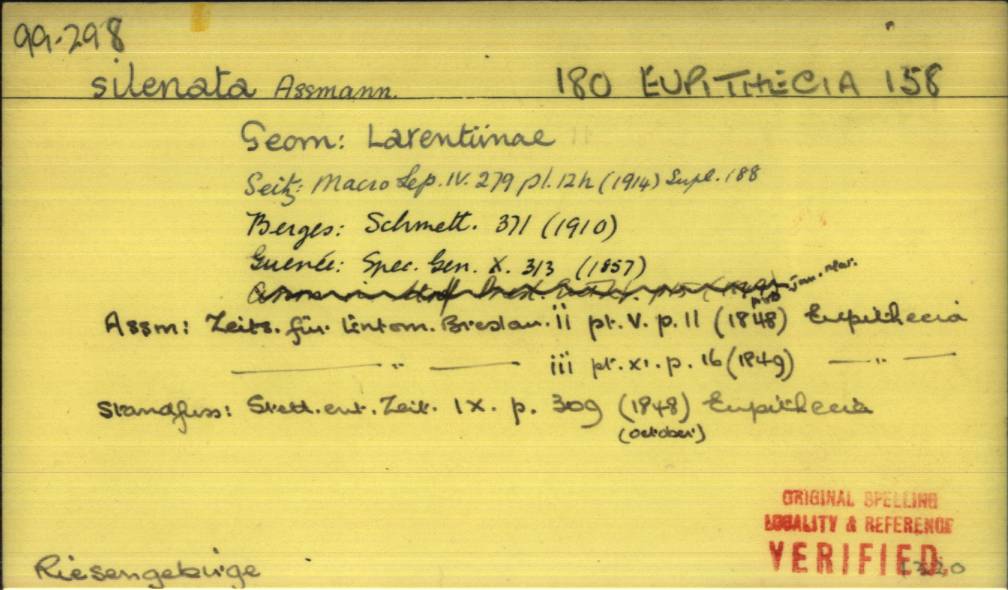 99.298
silenata Assmann. 180 EUPITHECIA 158
Geom: Larentiinae
Seitz: Macro Lep. IV. 279 pl. 12h (1914) Supl. 188
Berges: Schmett. 371 (1910)
Guenée: Spec. Gen. X. 313 (1857)
Assm: Zeits. für Entom. Breslau. ii pt. V. p. 11 (1848) Eupithecia
— " — iii pt. xi. p. 16 (1849) — " —
Standfuss: Stett. ent. Zeit. IX. p. 309 (1848) Eupithecia
(October)
ORIGINAL SPELLING
LOCALITY & REFERENCE
VERIFIED
Riesengebirge